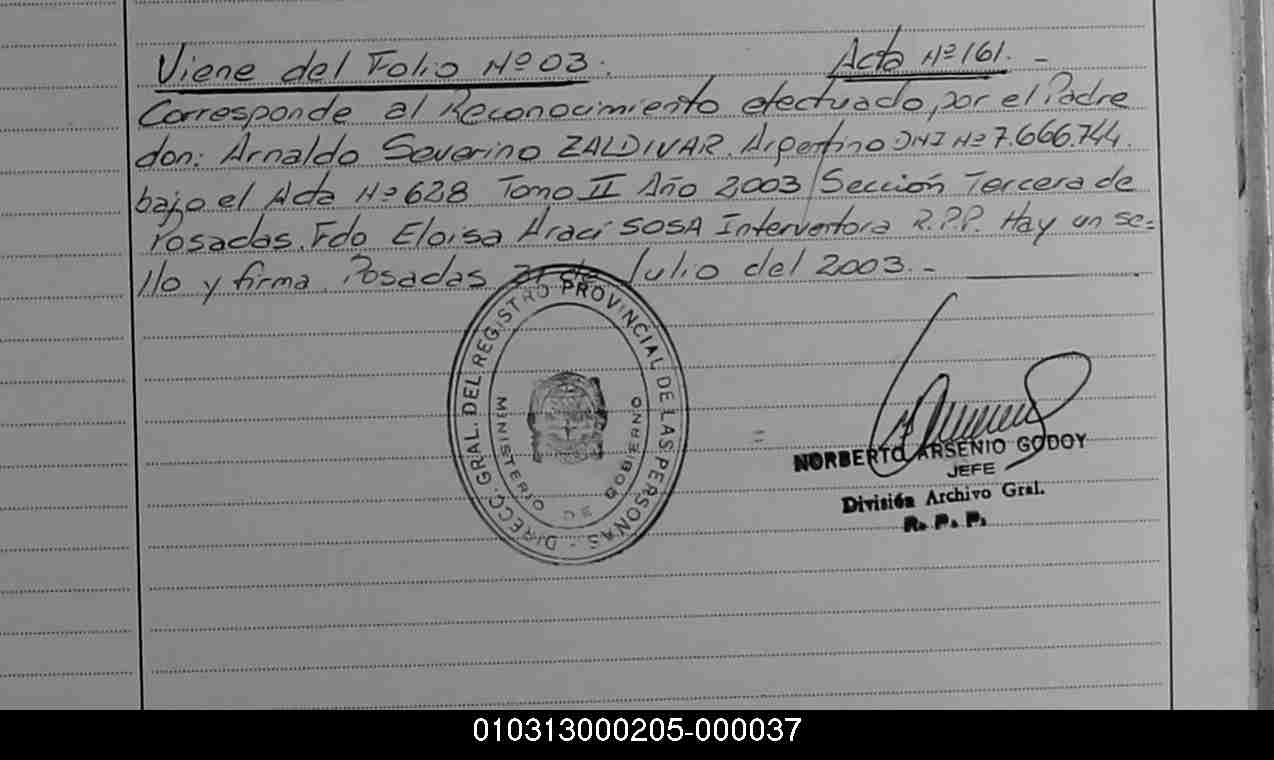 Viene del Folio Nº 03. Acta Nº 161. -
Corresponde al Reconocimiento efectuado, por el Padre
don: Arnaldo Severino ZALDIVAR. Argentino DNI Nº 7.666.744.
bajo el Acta Nº 628 Tomo II Año 2003 Sección Tercera de
Posadas. Fdo Eloisa Araci SOSA Interventora R.P.P. Hay un se=
llo y firma. Posadas de Julio del 2003. -
DIRECC. GRAL. DEL REGISTRO PROVINCIAL DE LAS PERSONAS -
MINISTERIO DE GOBIERNO
NORBERTO ARSENIO GODOY
JEFE
División Archivo Gral.
R. P. P.
010313000205-000037